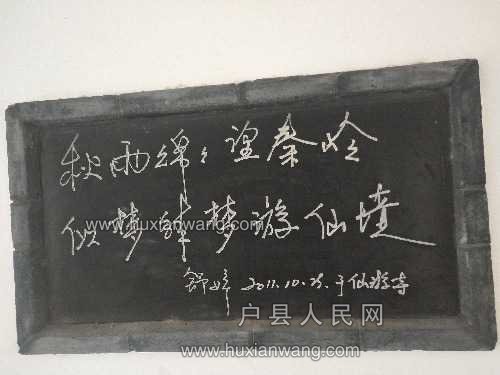 秋雨绵绵望秦岭
似梦非梦游仙境
舒婷 2011.10.25.于仙游寺
www.huxianwang.com
户县人民网
www.huxianwang.com